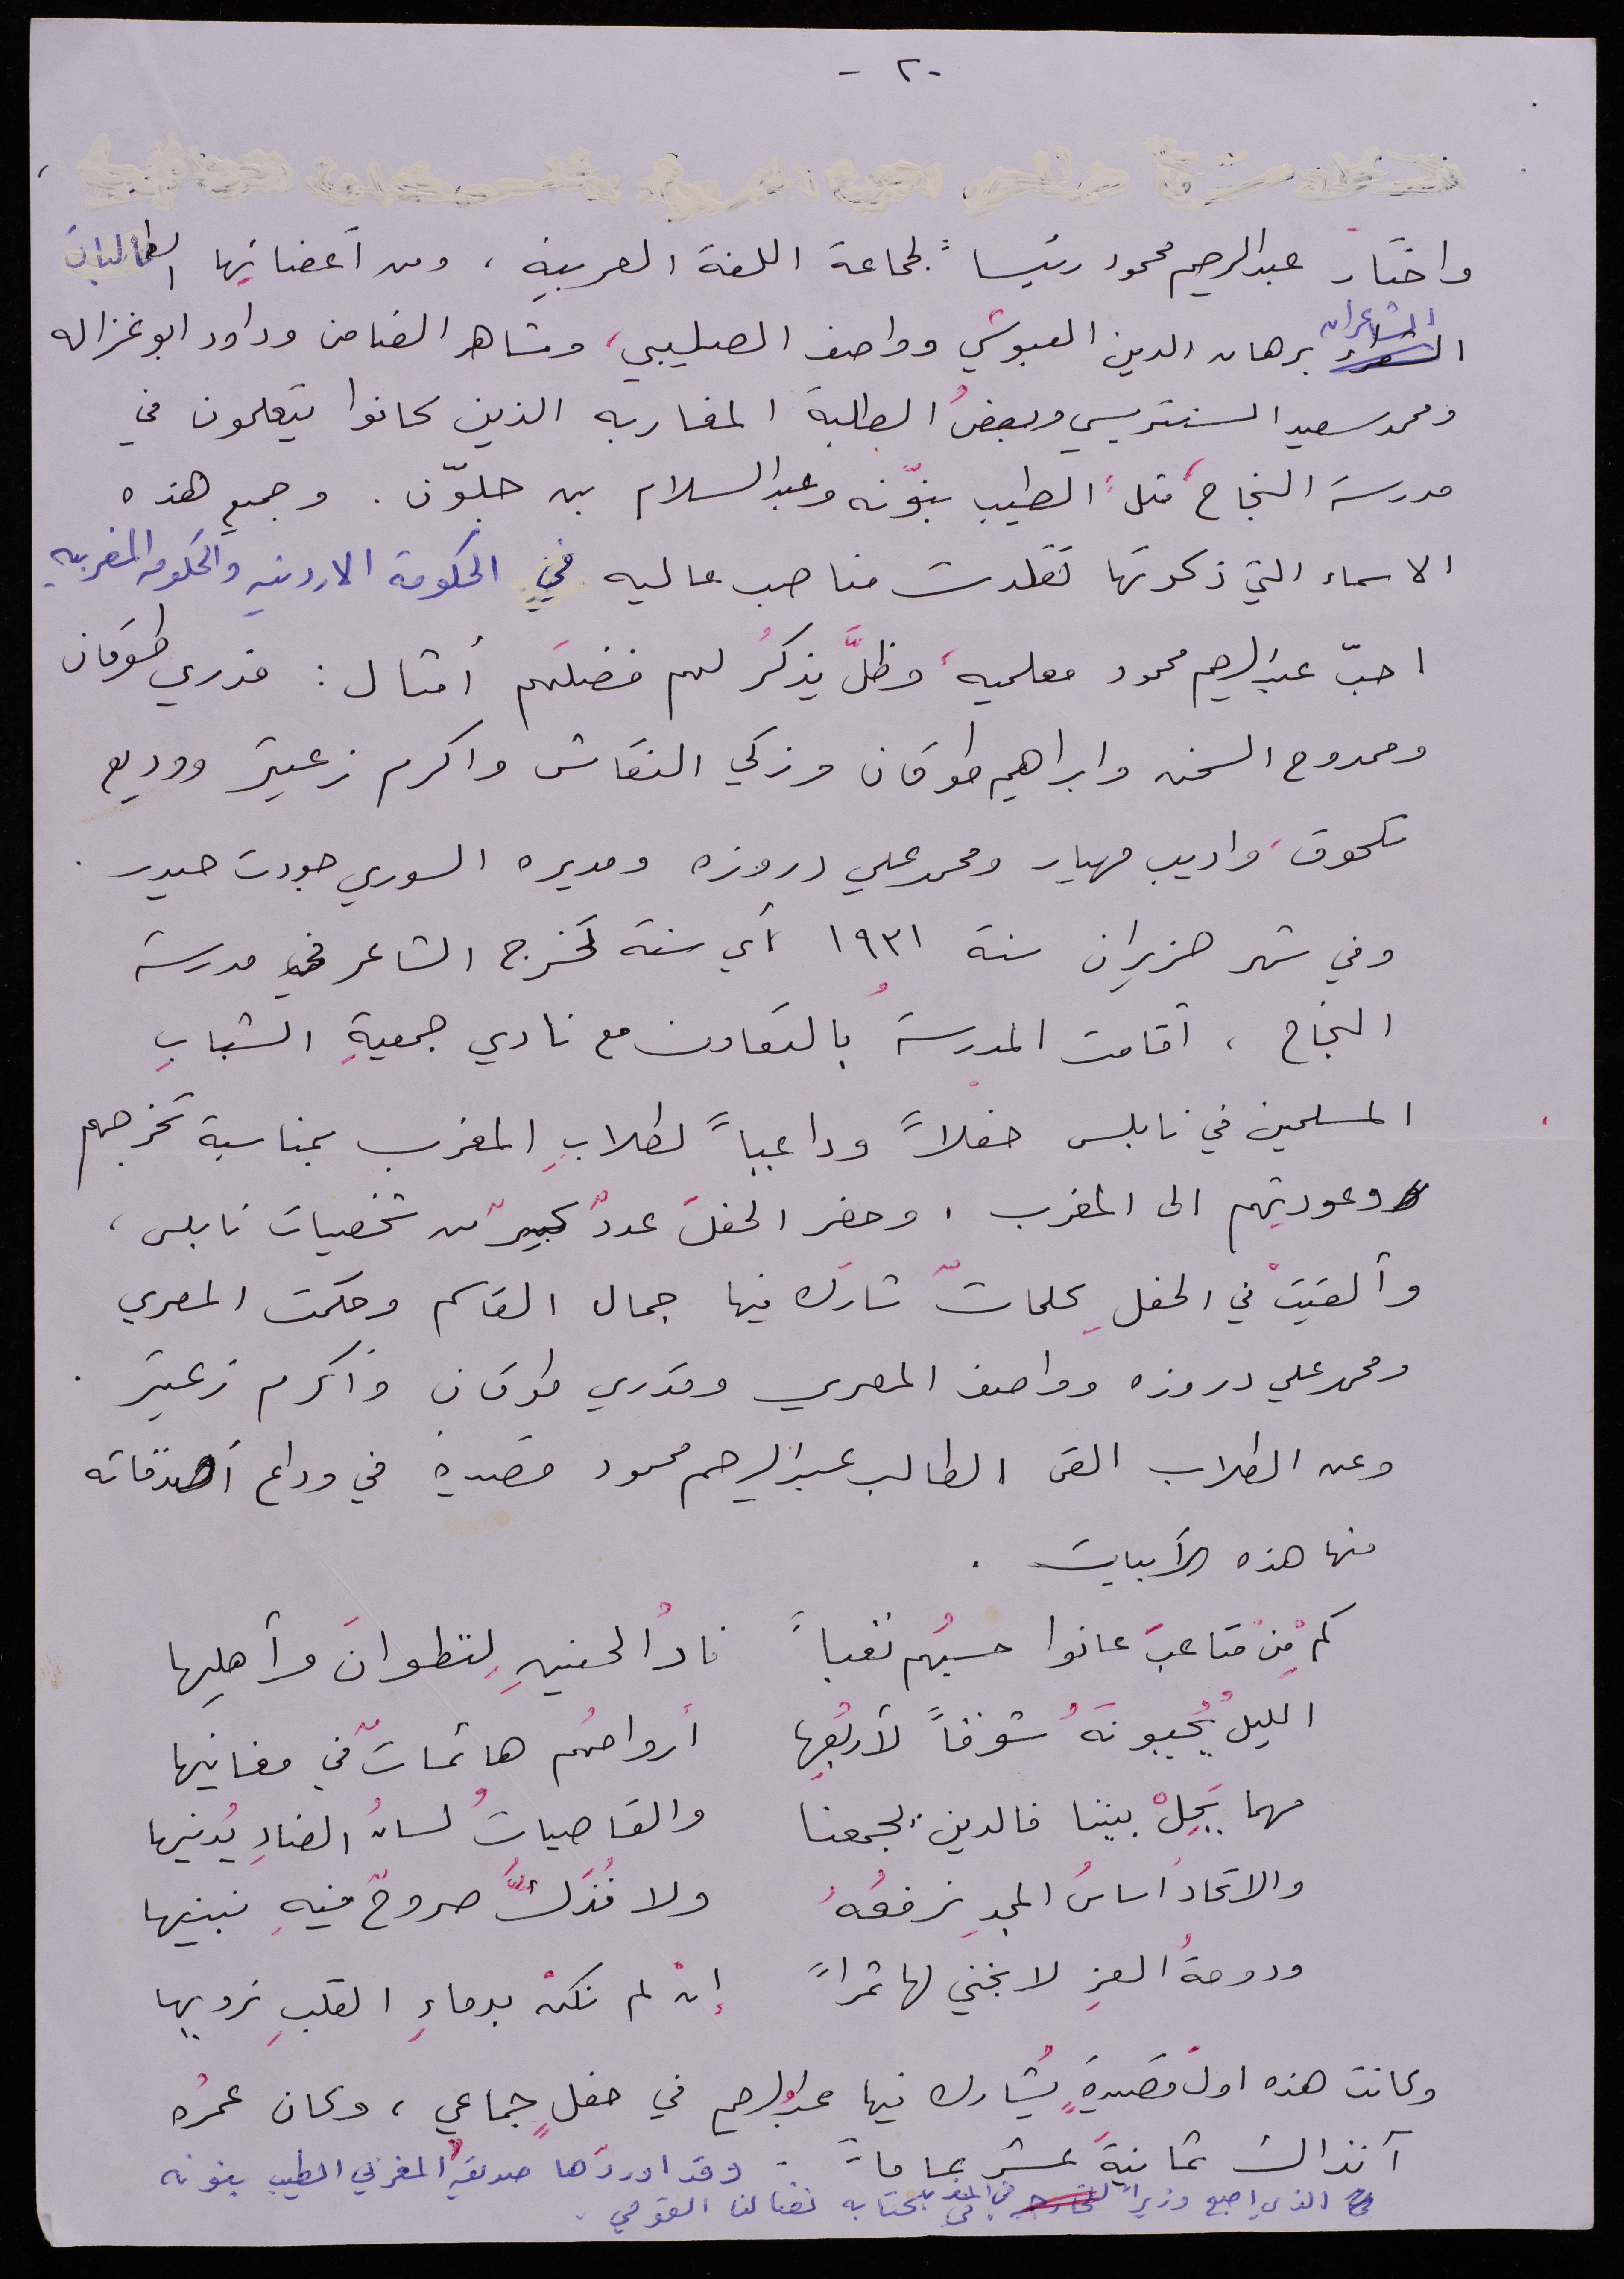 - ٢ -
واختار عبدالرحيم محمود رئيساً لجماعة اللغة العربية، ومن أعضائها الطالبان
الشاعران برهان الدين العبوشي وواصف الصليبي، ومشاهر الضامن وداود ابوغزاله
ومحمد سعيد السنتريسي وبعضُ الطلبة المغاربه الذين كانوا يتعلمون في
مدرسة النجاح، مثل الطيب بنّونه وعبدالسلام بن جلوّن. وجميع هذه
الاسماء التي ذكرتها تقلدت مناصب عاليه في الحكومة الاردنيه والحكومه المغربيه
احبّ عبدالرحيم محمود معلميه، وظلَّ يذكرُ لهم فضلَهم أمثال: قدري طوقان
وممدوح السخن وابراهيم طوقان وزكي النقاش واكرم زعيتر ووديع
تلحوق، واديب مهيار ومحمد علي دروزه ومديره السوري جودت حيدر.
وفي شهر حزيران سنة ١٩٣١ أي سنة تخرج الشاعر في مدرسة
النجاح، أقامت المدرسةُ بالتعاون مع نادي جمعيةِ الشبابِ
المسلمين في نابلس حفلاً وداعياً لطلابِ المغرب بمناسبة تخرجهم
وعودتهم الى المغرب، وحضر الحفلَ عددٌ كبيرٌ من شخصيات نابلس،
وألقيتْ في الحفلِ كلماتٌ شارك فيها جمال القاسم وحكمت المصري
ومحمد علي دروزه وواصف المصري وقدري طوقان وأكرم زعيتر.
وعن الطلاب القى الطالب عبدالرحيم محمود قصيدة في وداع أصدقائه
منها هذه الأبيات.
كم مِنْ متاعبَ عانوا حسبُهم تعباً نارُ الحنينِ لِتطوانَ وأهلِها
الليلُ يُحيونهُ شوقاً لأربُعِها أرواحُهم هائماتٌ في مغانيها
مهما يَحِلْ بيننا فالدين يجمعنا والقاصياتُ لسانُ الضادِ يُدنيها
والاتحادُ أساسُ المجدِ نرفعُهُ ولا تُدَكُّ صروحٌ فيهِ نبنيها
ودوحةُ العزِ لا نجني لها ثمراً إنْ لم نكنْ بدماءِ القلبِ نرويها
وكانت هذه اولَ قصيدةٍ يُشارك فيها عبدالرحيم في حفلٍ جماعي، وكان عمرُه
آنذاك ثمانيةَ عشر عاماً. وقد اوردَها صديقهُ المغربي الطيب بنونه
الذي اصبح وزيراً للخارجيه في المغرب في كتابه نضالنا القومي.